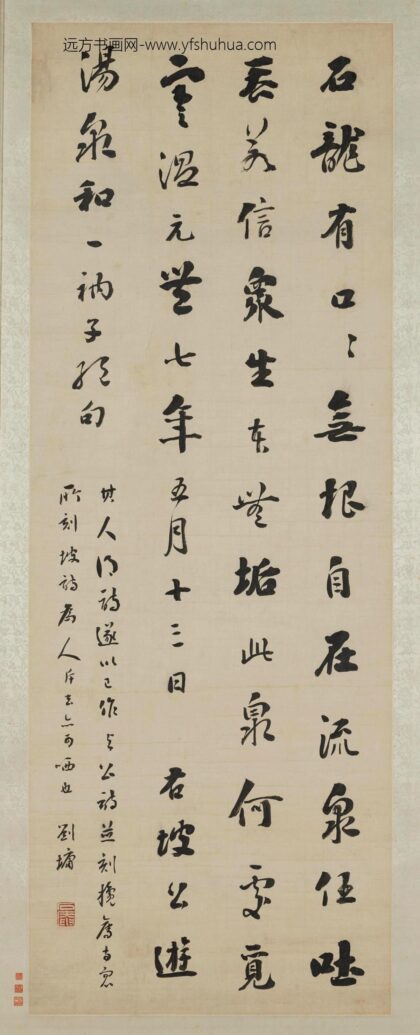 远方书画网-www.yfshuhua.com
石龍有口〻無根自在流泉任吐
吞若信衆生本無垢此泉何處覓
寒溫元豐七年五月十三日 右坡公遊
湯泉和一衲子絕句
其人得詩遂以己作与公詩並刻
所刻坡詩為人斥去亦可哂也 劉墉